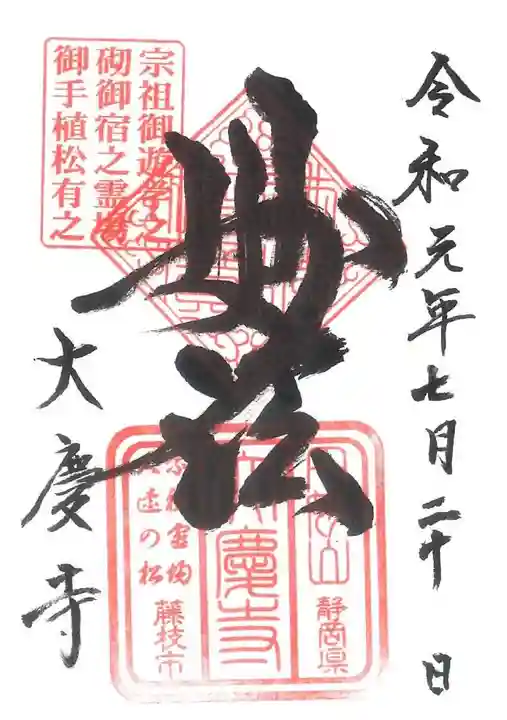 令和元年七月二十日
妙法
大慶寺
宗祖御遊学之
砌御宿之霊場
御手植松有之
静岡県
大慶寺
藤枝市
の松